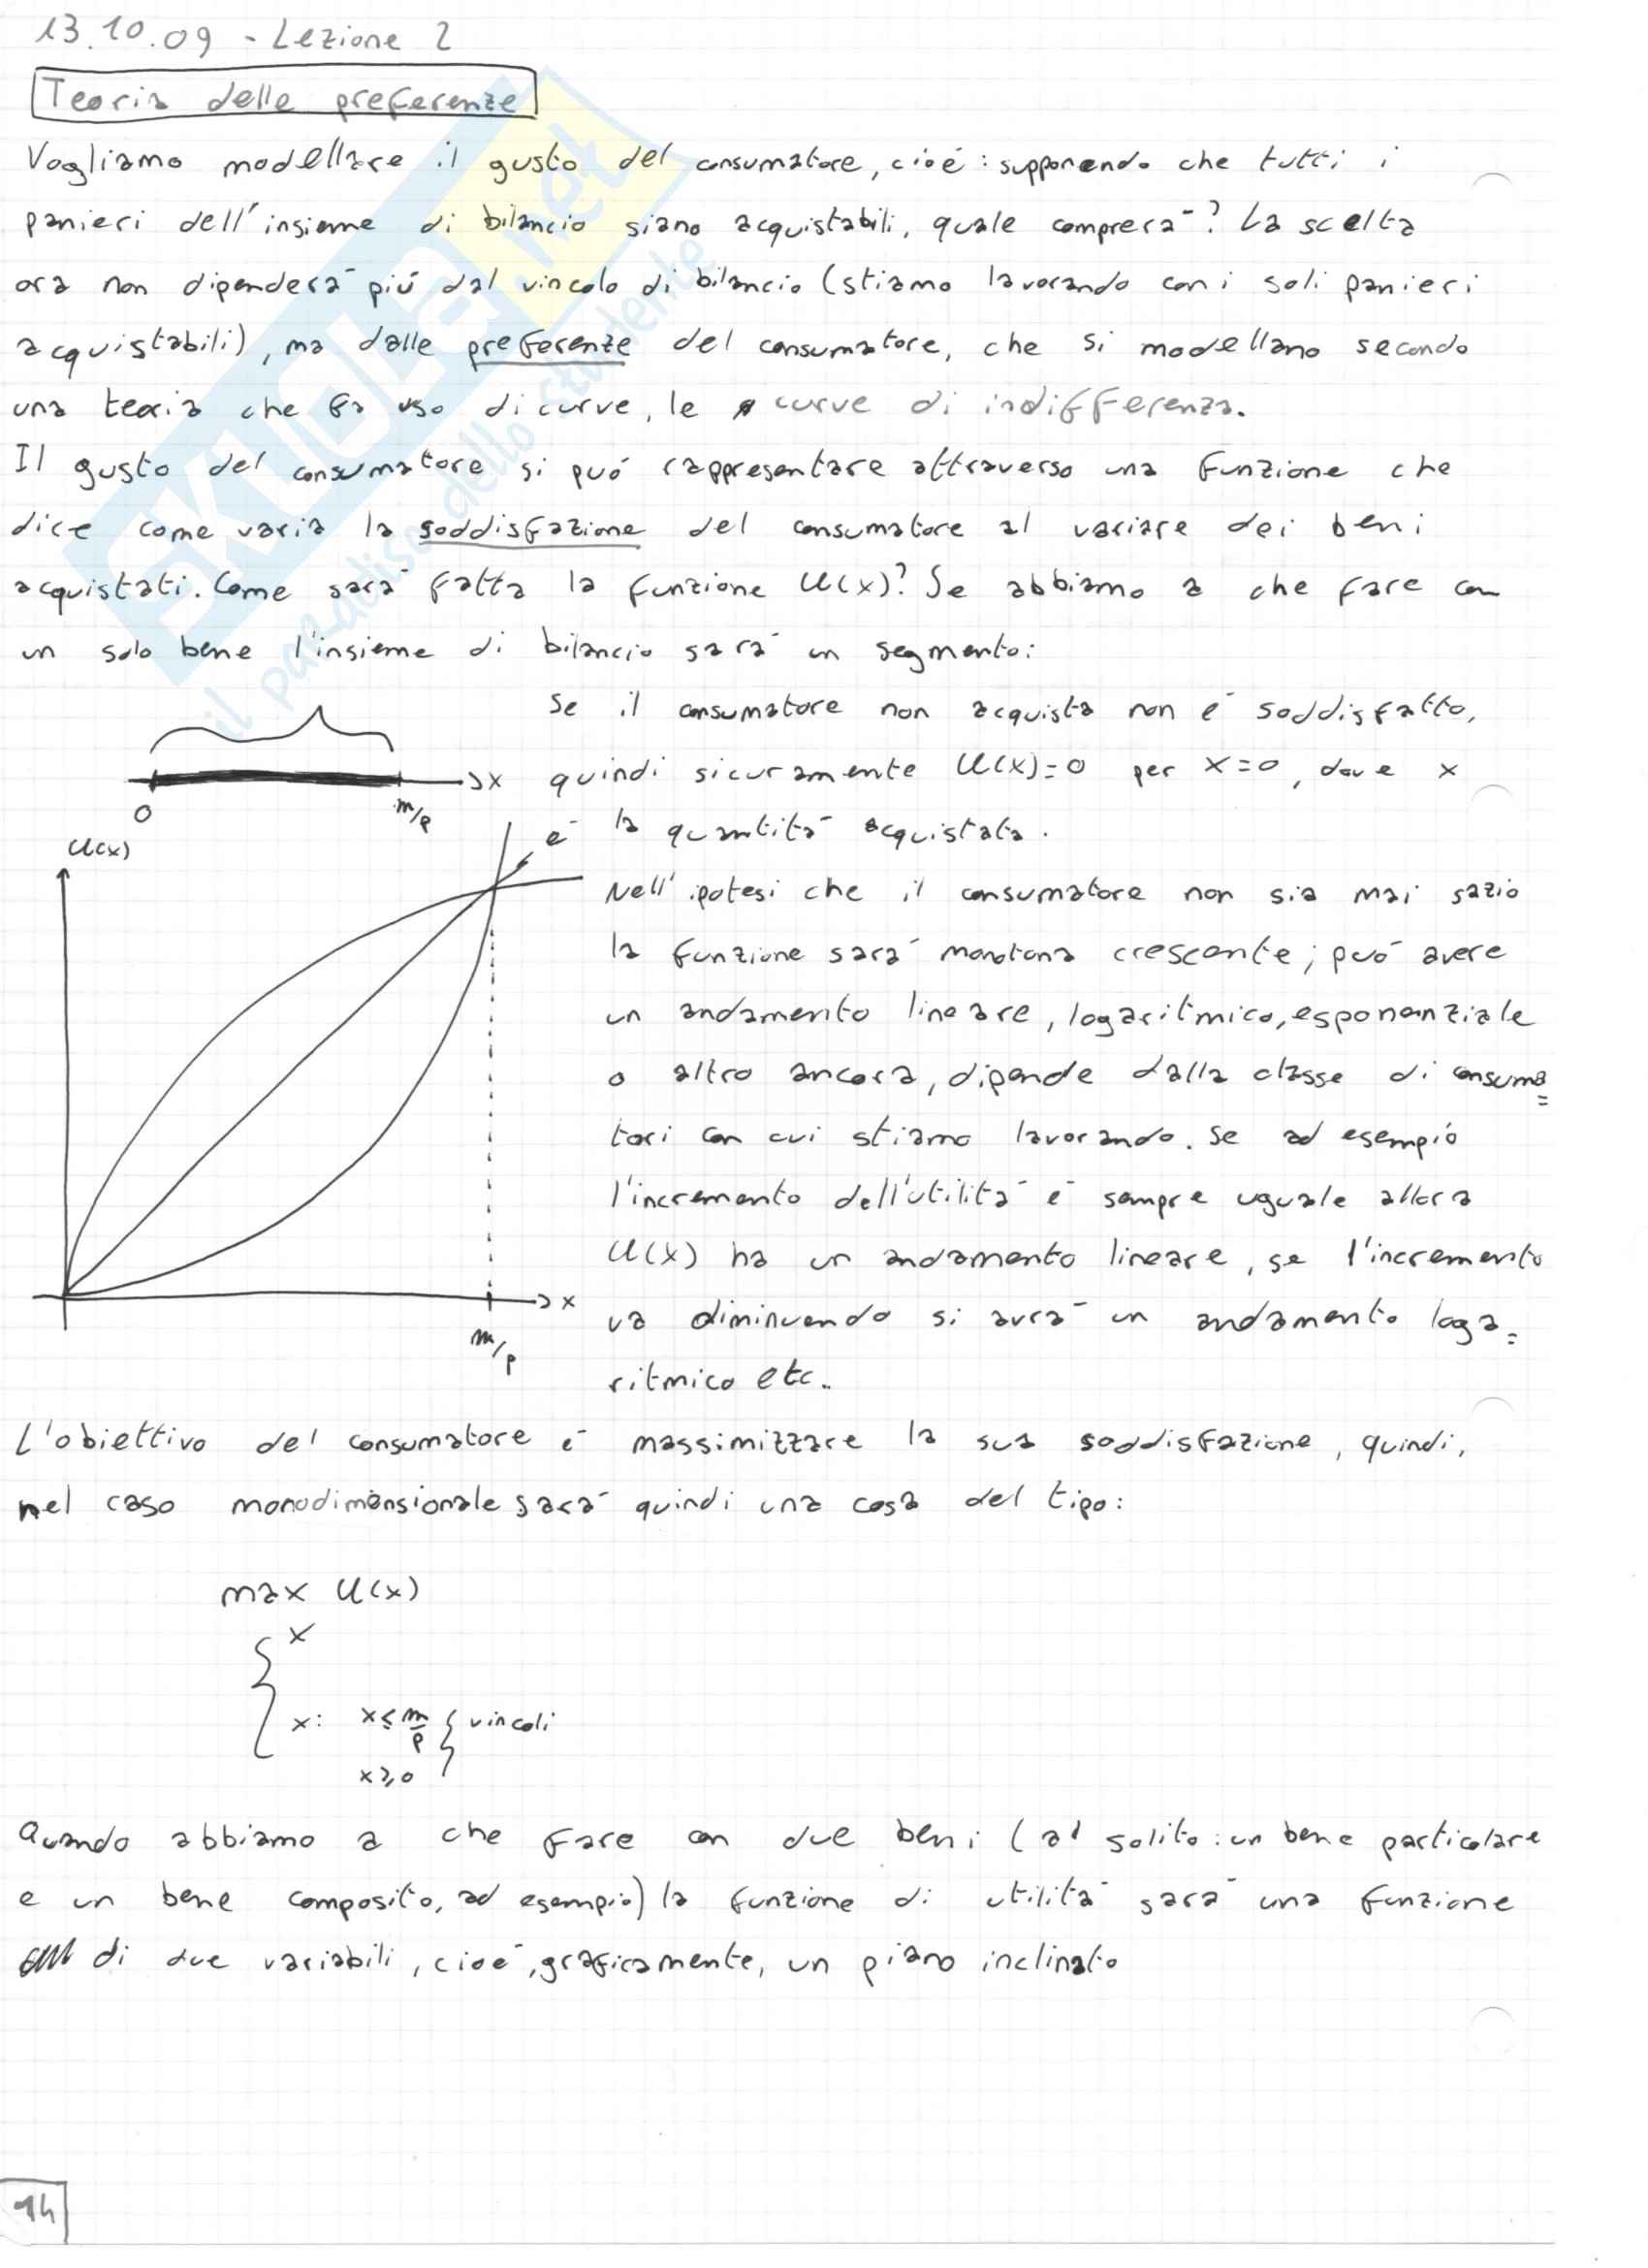 13.10.09 - Lezione 2
Teoria delle preferenze
Vogliamo modellare il gusto del consumatore, cioé: supponendo che tutti i
panieri dell'insieme di bilancio siano acquistabili, quale comprerà? La scelta
ora non dipenderà piú dal vincolo di bilancio (stiamo lavorando con i soli panieri
acquistabili), ma dalle preferenze del consumatore, che si modellano secondo
una teoria che fa uso di curve, le curve di indifferenza.
Il gusto del consumatore si puó rappresentare attraverso una funzione che
dice come varia la soddisfazione del consumatore al variare dei beni
acquistati. Come sarà fatta la funzione U(x)? Se abbiamo a che fare con
un solo bene l'insieme di bilancio sarà un segmento:
Se il consumatore non acquista non é soddisfatto,
quindi sicuramente U(x)=0 per x=0, dove x
é la quantità acquistata.
0
m/p
x
U(x)
Nell'ipotesi che il consumatore non sia mai sazio
la funzione sarà monotona crescente; puó avere
un andamento lineare, logaritmico, esponenziale
o altro ancora, dipende dalla classe di consuma=
tori con cui stiamo lavorando. Se ad esempio
l'incremento dell'utilità é sempre uguale allora
U(x) ha un andamento lineare, se l'incremento
va diminuendo si avrà un andamento loga=
ritmico etc..
x
m/p
L'obiettivo del consumatore é massimizzare la sua soddisfazione, quindi,
nel caso monodimensionale sarà quindi una cosa del tipo:
max U(x)
x
x: x≤m/p } vincoli
x≥0
Quando abbiamo a che fare con due beni (al solito: un bene particolare
e un bene composito, ad esempio) la funzione di utilità sarà una funzione
di due variabili, cioé, graficamente, un piano inclinato
14
SKUOLA.net
il paradiso dello studente